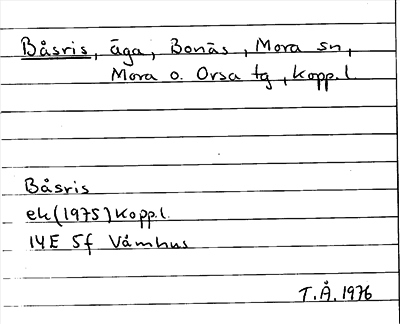 Båsris, äga, Bonäs, Mora sn,
Mora o. Orsa tg, Kopp.l.
Båsris
ek(1975)Kopp.l.
14E 5f Våmhus
T.Å. 1976